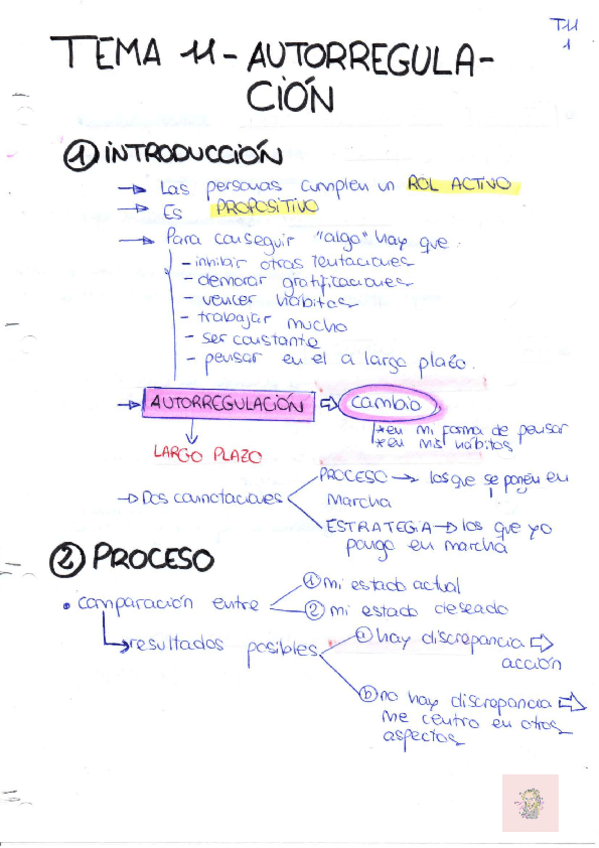 T11
1
TEMA 11 - AUTORREGULA-
CIÓN
① INTRODUCCIÓN
→ Las personas cumplen un ROL ACTIVO
→ Es PROPOSITIVO
→ Para conseguir "algo" hay que:
- inhibir otras tentaciones
- demorar gratificaciones
- vencer hábitos
- trabajar mucho
- ser constante
- pensar en el a largo plazo.
→ AUTORREGULACIÓN ⇒ cambio
* en mi forma de pensar
* en mis hábitos
LARGO PLAZO
→ Dos connotaciones
PROCESO → los que se ponen en
marcha
ESTRATEGIA → los que yo
pongo en marcha
② PROCESO
• comparación entre
① mi estado actual
② mi estado deseado
resultados posibles
ⓐ hay discrepancia ⇒
acción
ⓑ no hay discrepancia ⇒
me centro en otros
aspectos